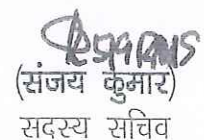 (संजय कुमार)
सदस्य सचिव